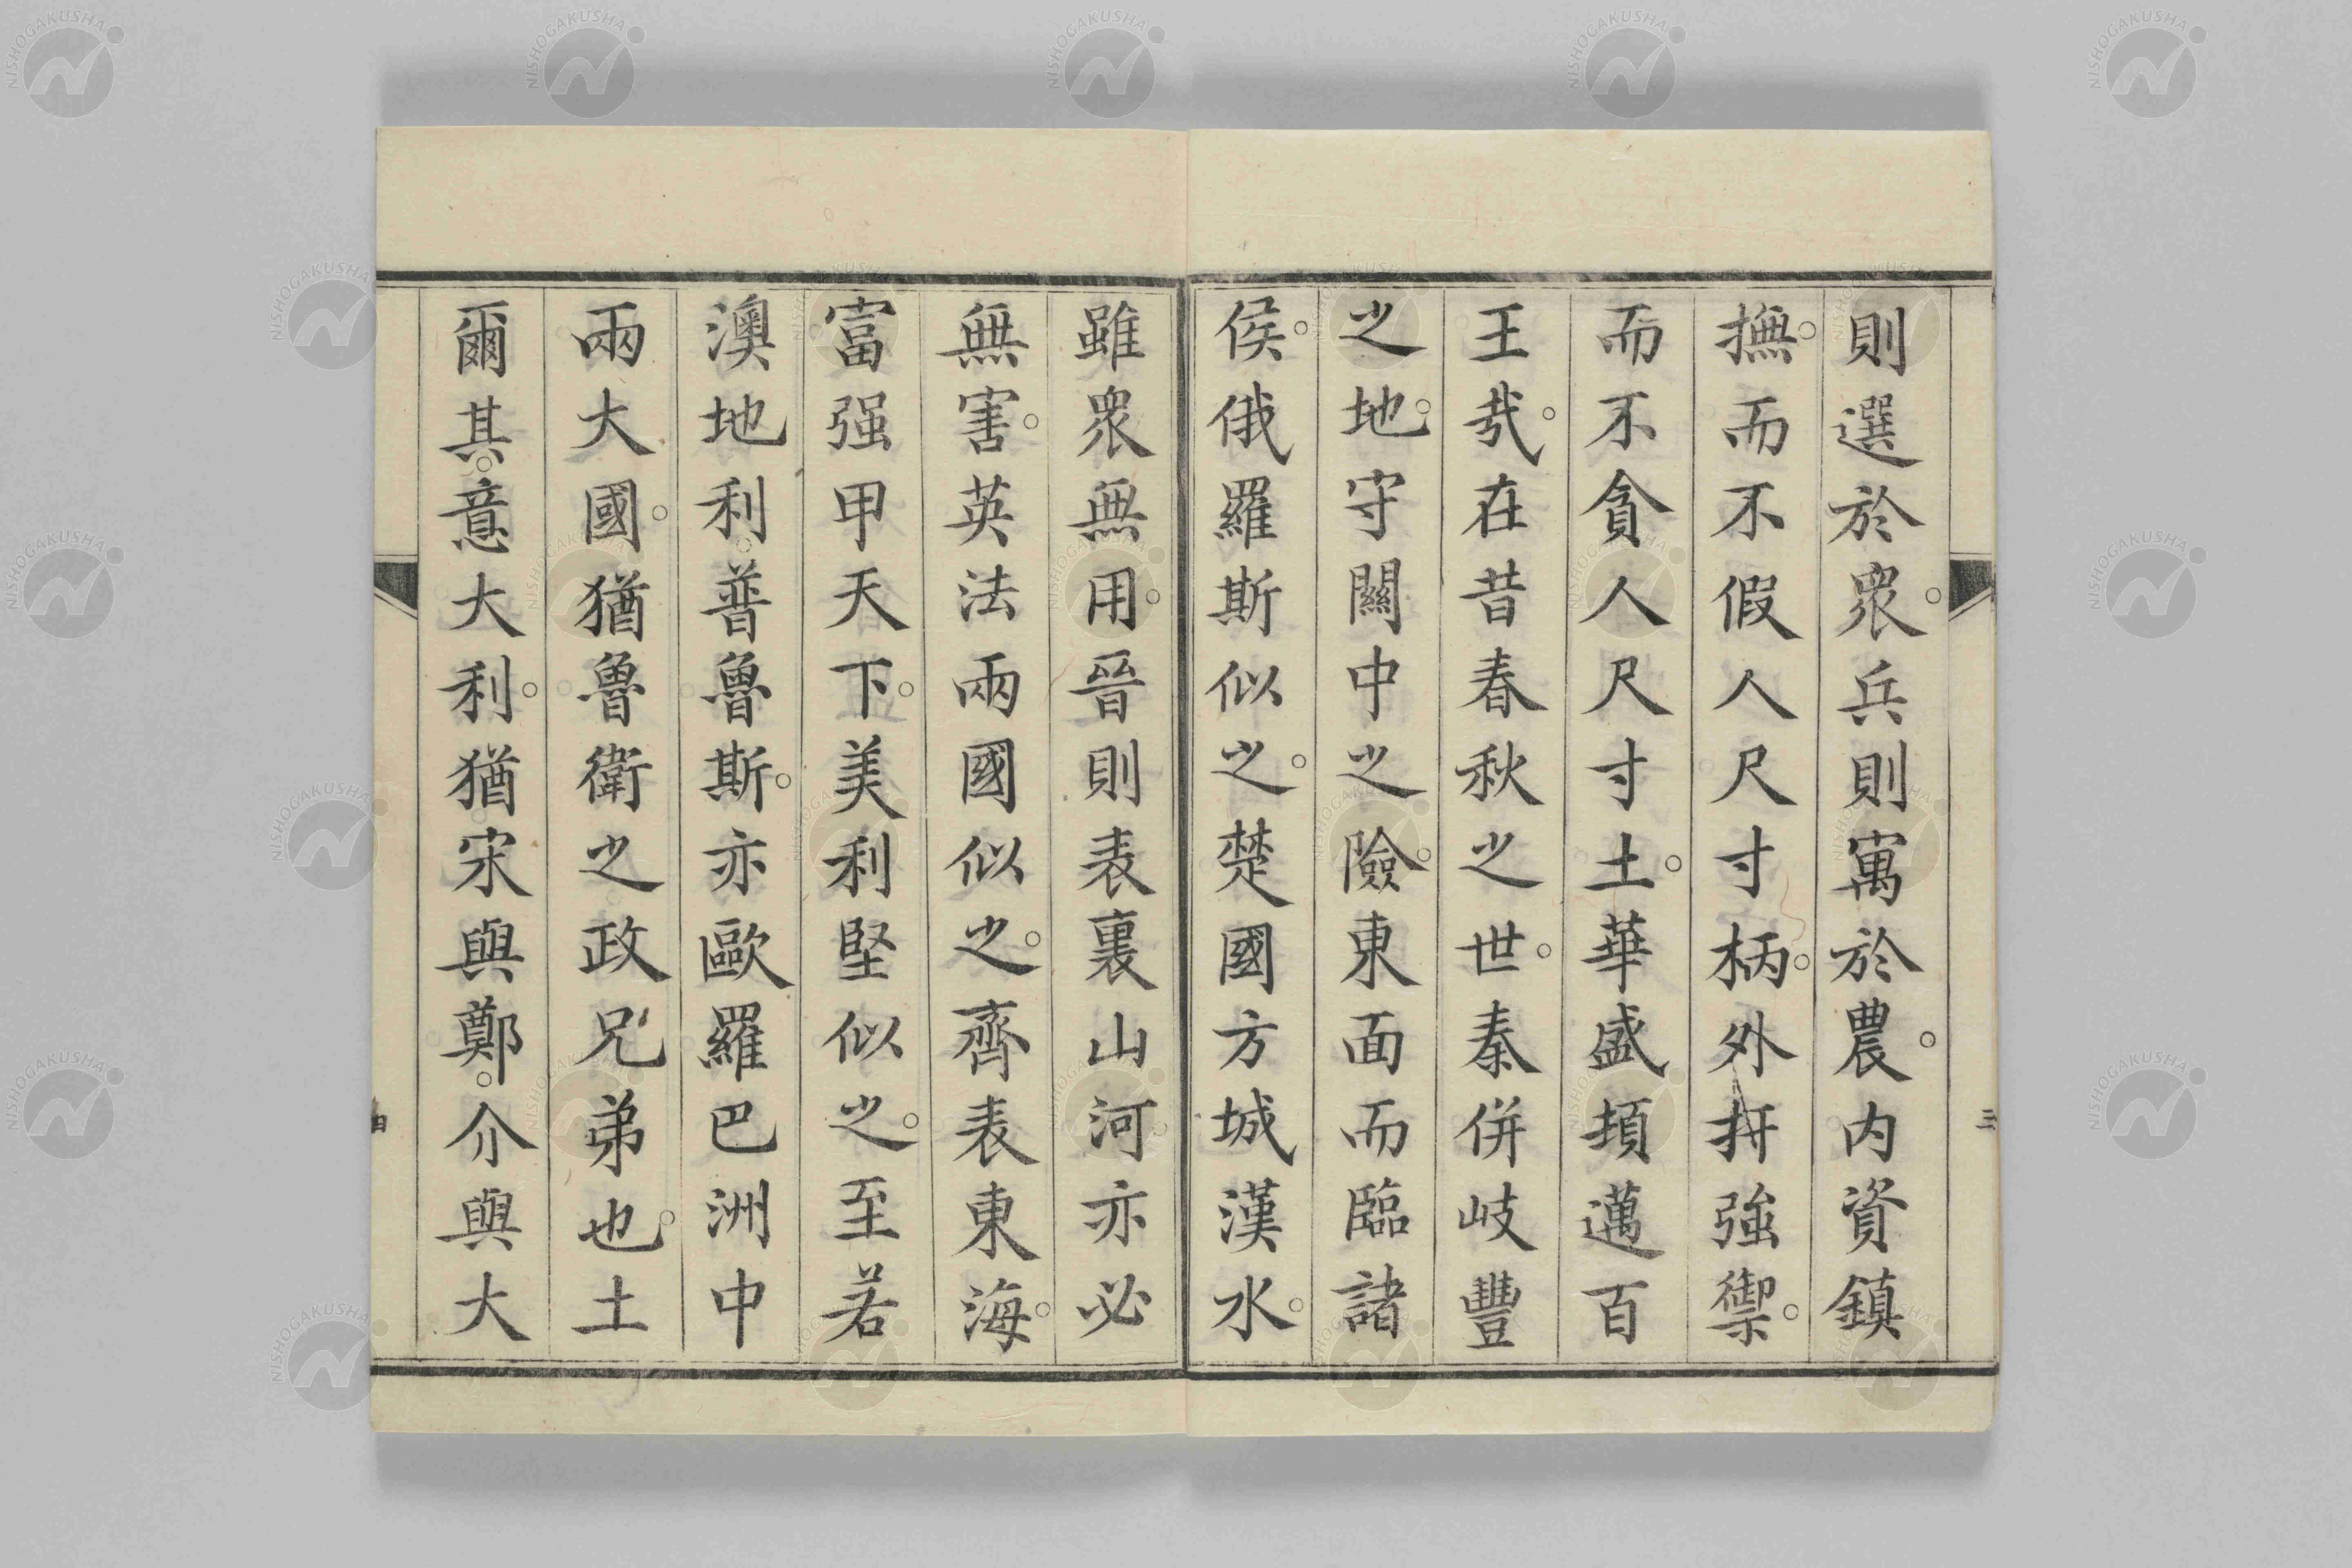 則選於衆。兵則寓於農。内資鎮
撫。而不假人尺寸柄。外拼強禦。
而不貪人尺寸土。華盛頓邁百
王哉。在昔春秋之世。秦併岐豐
之地。守關中之險。東面而臨諸
侯。俄羅斯似之。楚國方城漢水。
雖衆無用。晉則表裏山河。亦必
無害。英法兩國似之。齊表東海。
富强甲天下。美利堅似之。至若
澳地利。普魯斯。亦歐羅巴洲中
兩大國。猶魯衛之政兄弟也。土
爾其。意大利。猶宋與鄭。介與大
三
NISHOGAKUSHA